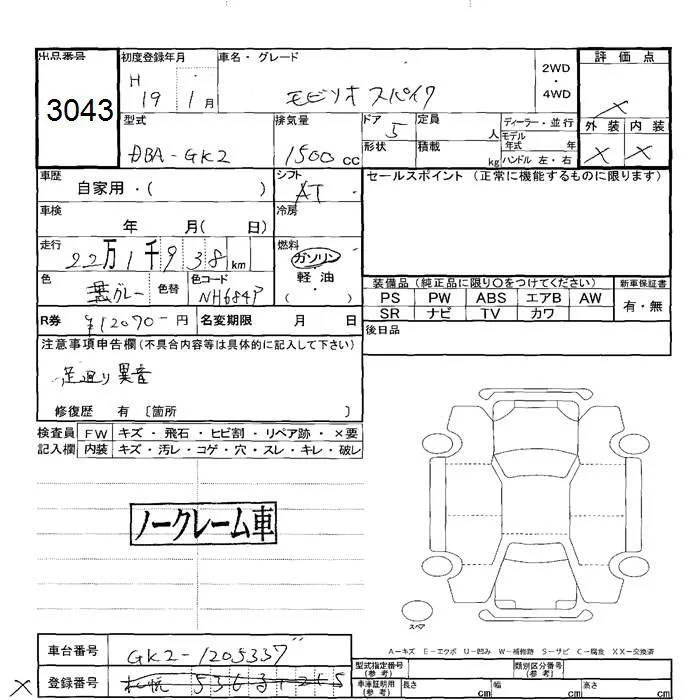 出品番号
3043
初度登録年月
H 19 1月
車名・グレード
モビリオスパイク
2WD
・
4WD
評価点
×
外装 内装
× ×
型式
DBA-GK2
排気量
1500cc
ドア
5
形状
定員
人
積載
kg
ディーラー・並行
モデル年式 年
ハンドル 左・右
車歴
自家用・( )
シフト
AT
車検
年 月( 日)
冷房
走行
22万1千938km
燃料
ガソリン
軽油
( )
色
グレー
色替
色コード
NH684P
R券
¥12070-円
名変期限 月 日
セールスポイント (正常に機能するものに限ります)
装備品 (純正品に限り○をつけてください)
PS PW ABS エアB AW
SR ナビ TV カワ
新車保証書
有・無
後日品
注意事項申告欄(不具合内容等は具体的に記入して下さい)
足廻り異音
修復歴 有 〔箇所 〕
検査員記入欄
FW キズ・飛石・ヒビ割・リペア跡・×要
内装 キズ・汚レ・コゲ・穴・スレ・キレ・破レ
ノークレーム車
スペア
A-キズ E-エクボ U-凹み W-補修跡 S-サビ C-腐食 XX-交換済
車台番号
GK2-1205337
× 登録番号
札幌 536
型式指定番号(参考)
類別区分番号(参考)
車庫証明用(参考)
長さ cm 幅 cm 高さ cm